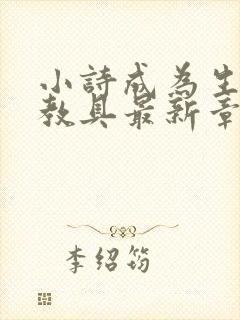 小詩成為生
教具最新章
李绍筠